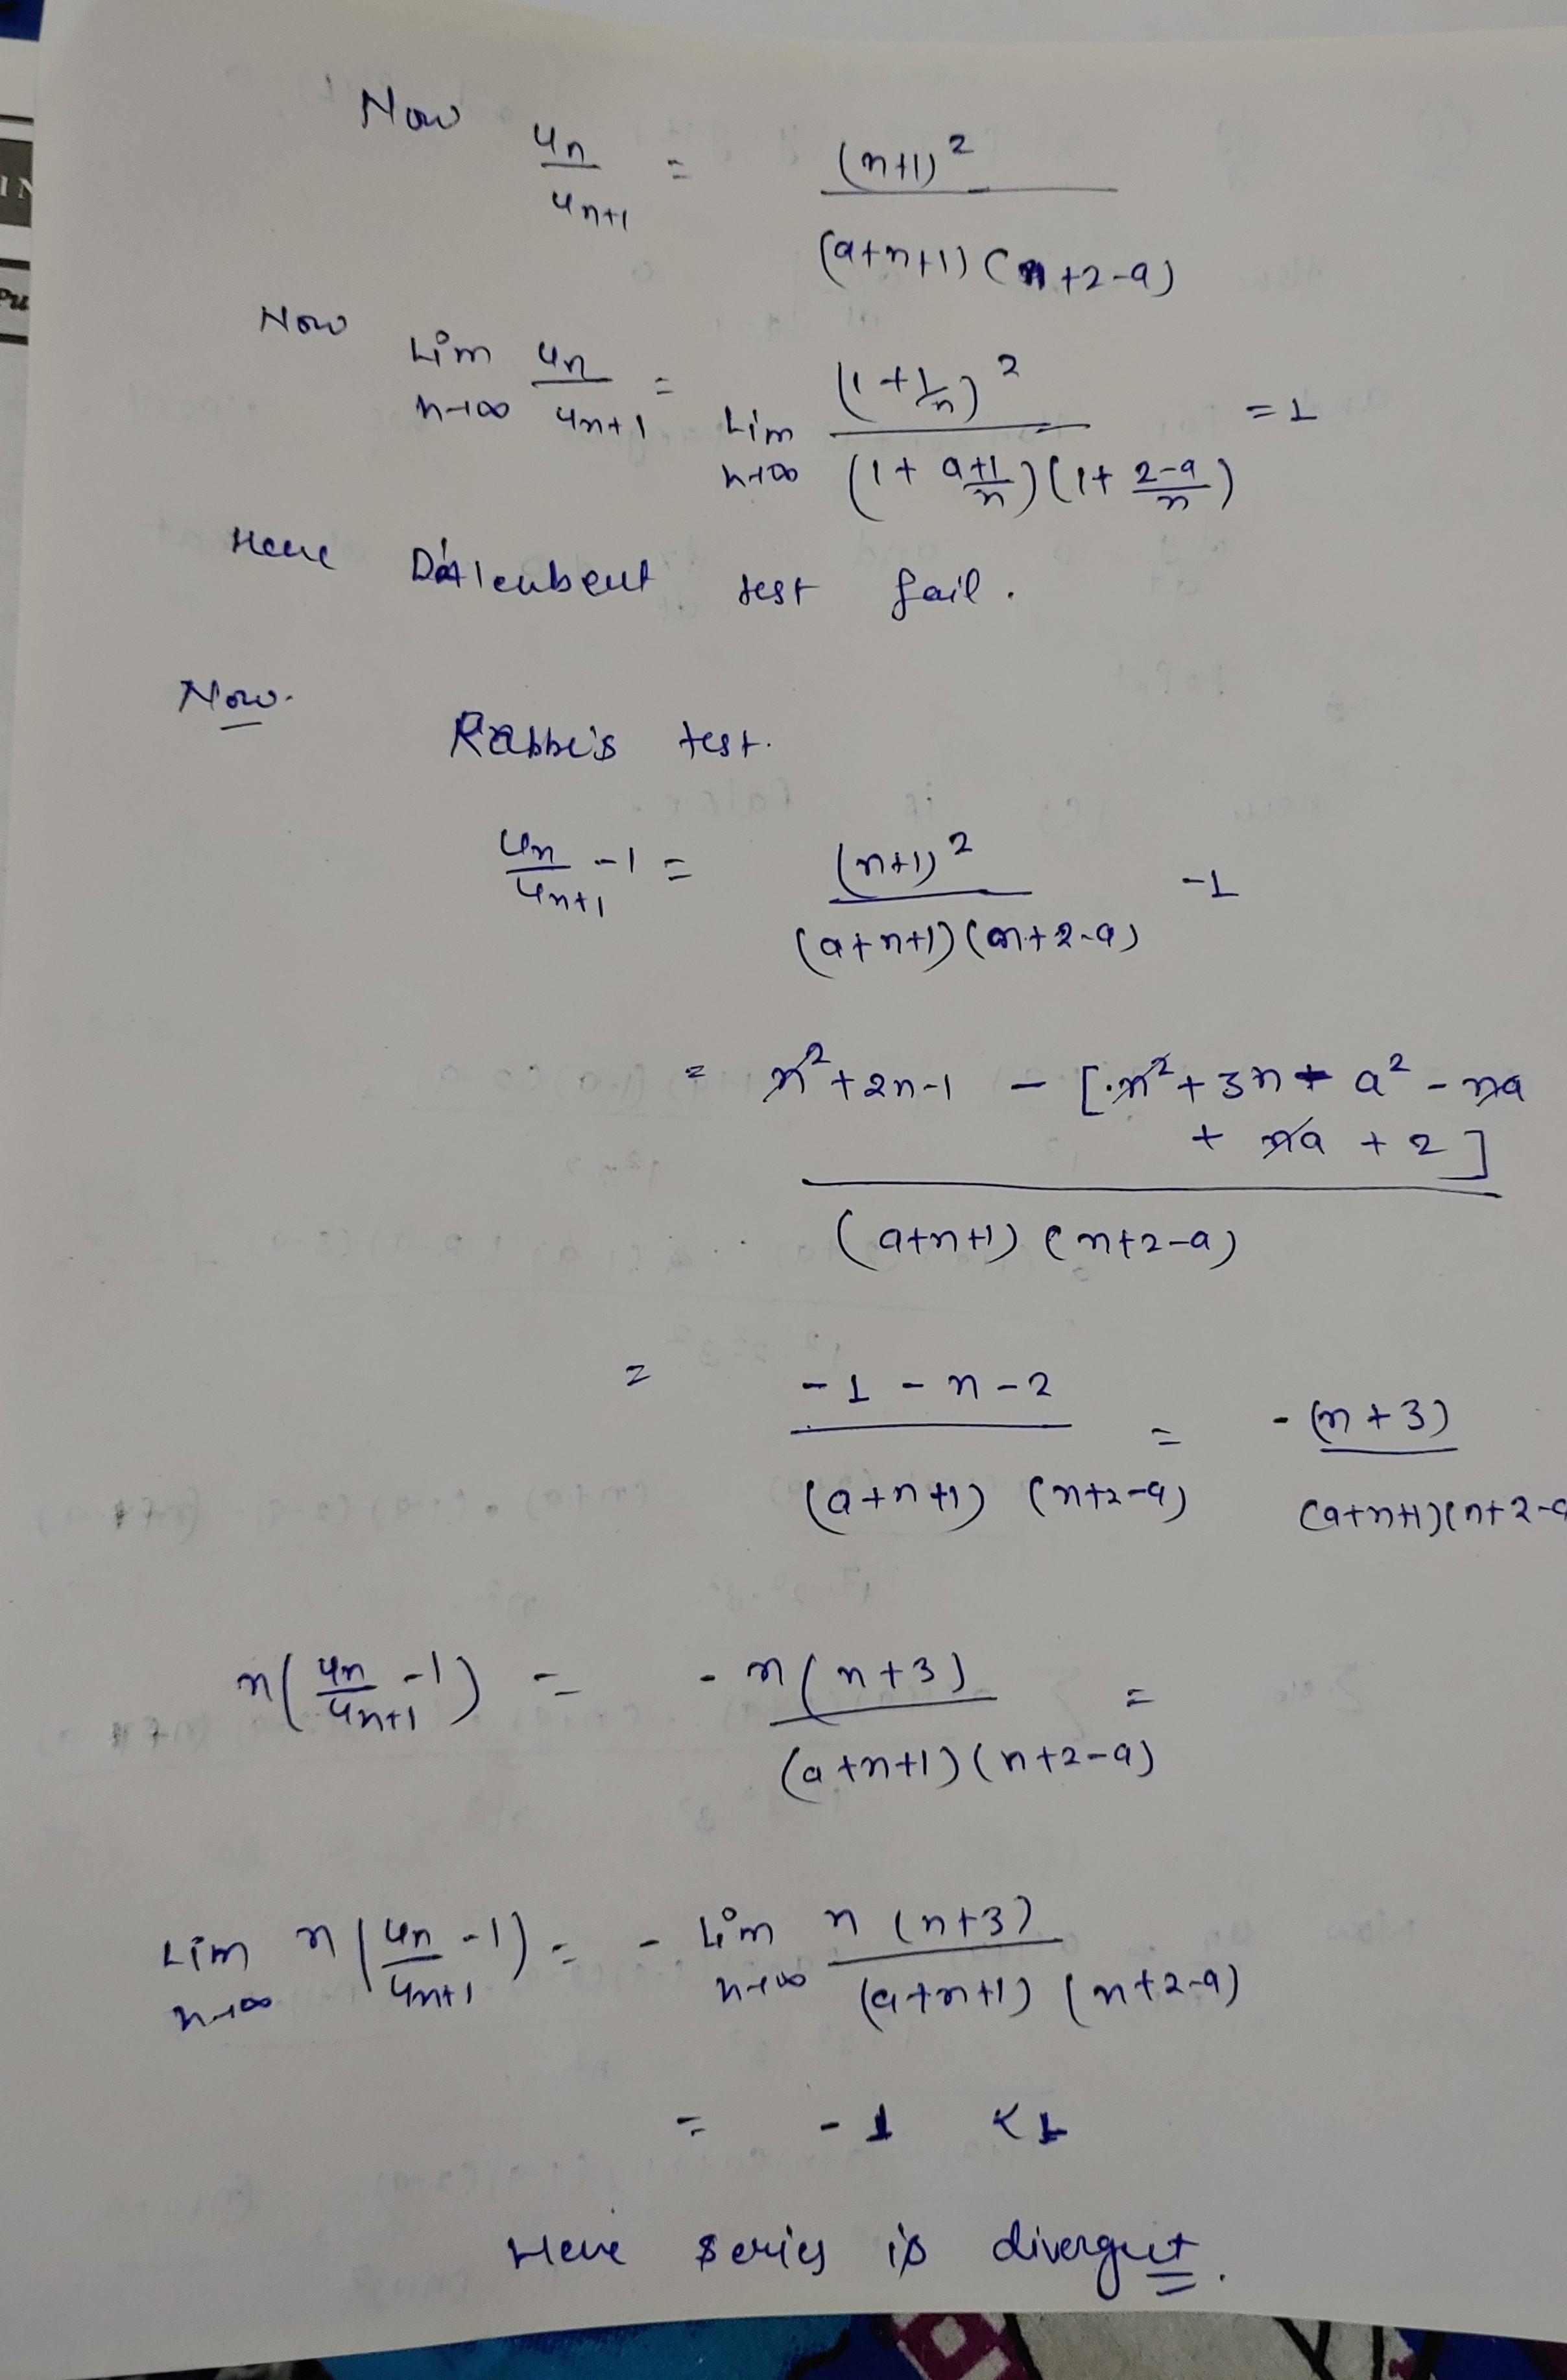 Now un/un+1 = (n+1)² / (a+n+1)(n+2-a)
Now Lim n→∞ un/un+1 = Lim n→∞ (1+1/n)² / (1+ a+1/n)(1+ 2-a/n) = 1
Here D'Alembert test fail.
Now.
Rabbe's test.
un/un+1 -1 = (n+1)² / (a+n+1)(n+2-a) -1
= n²+2n-1 - [n²+3n+a²-na
+ na +2]
/ (a+n+1)(n+2-a)
= -1-n-2 / (a+n+1)(n+2-a) = -(n+3) / (a+n+1)(n+2-a
n(un/un+1 -1) = -n(n+3) / (a+n+1)(n+2-a) =
Lim n→∞ n(un/un+1 -1) = - Lim n→∞ n(n+3) / (a+n+1)(n+2-a)
= -1 < 1
Here series is divergent.
IN
Pu